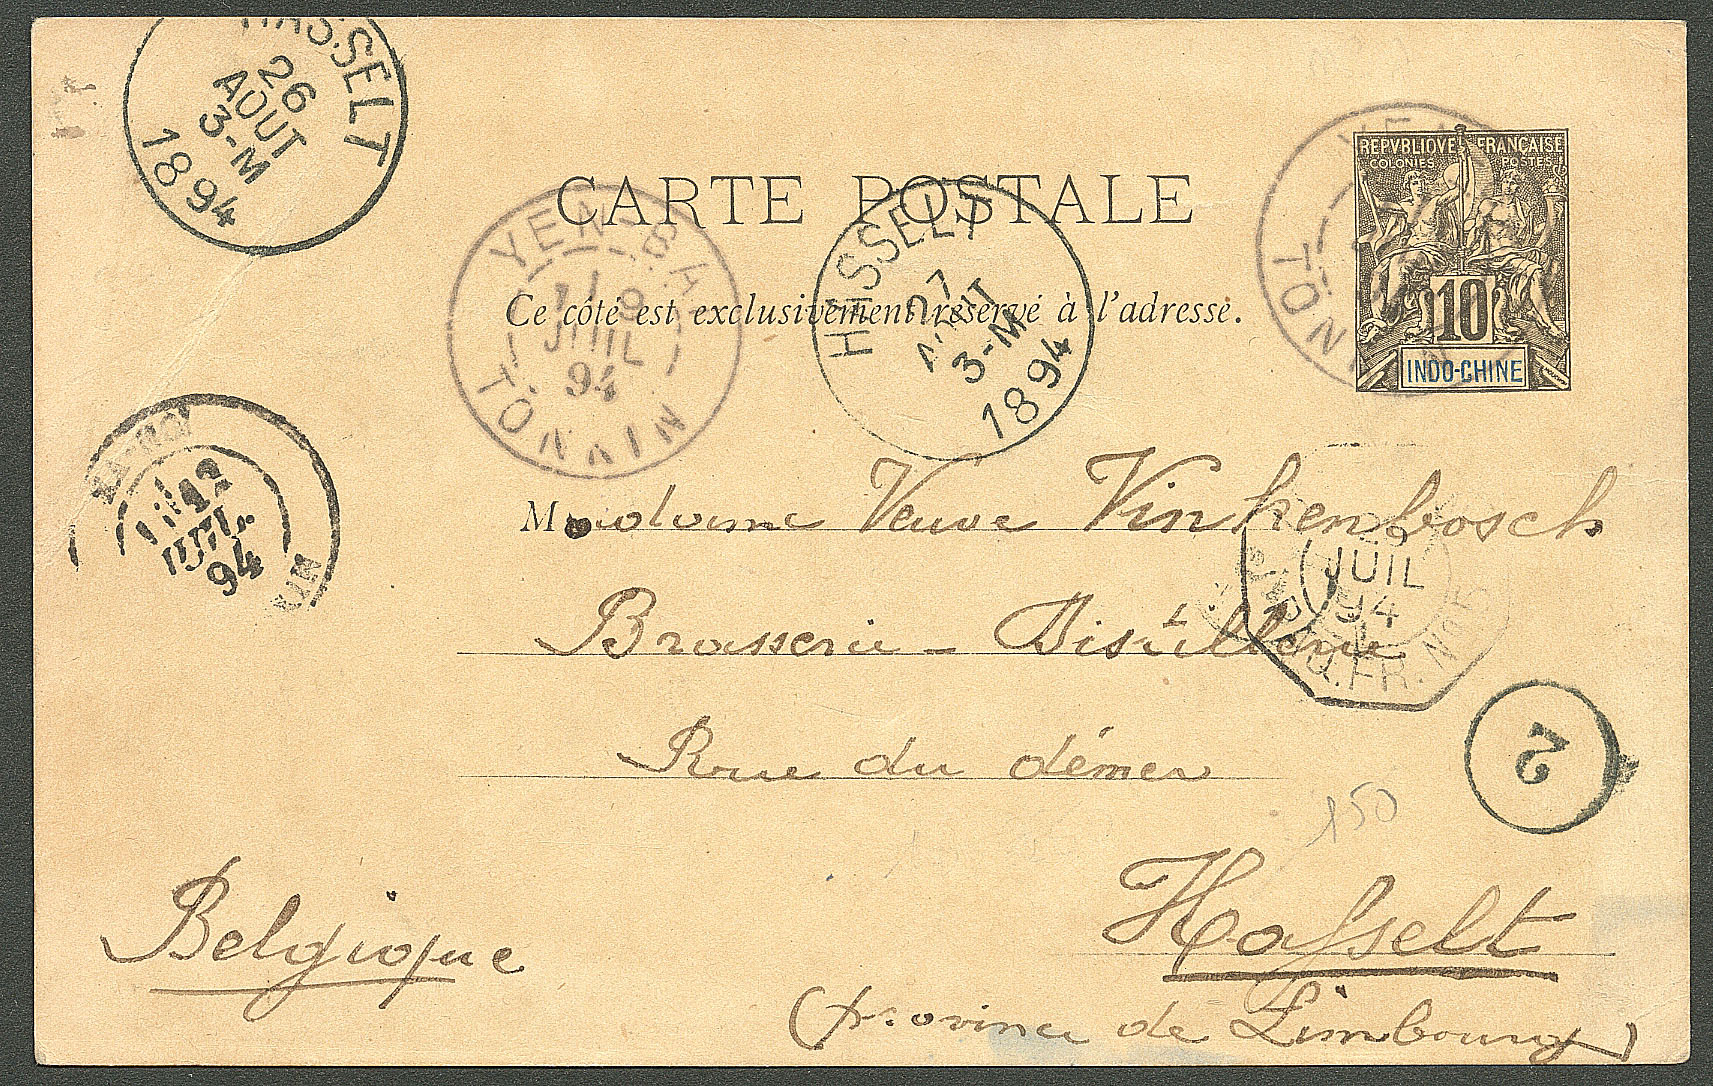 HASSELT
26
AOUT
3-M
1894
REPVBLIQVE FRANÇAISE
COLONIES POSTES
10
INDO-CHINE
CARTE POSTALE
Ce côté est exclusivement réservé à l'adresse.
YEN-BA
JUIL
94
TONKIN
HASSELT
27
AOUT
3-M
1894
YEN
TONKIN
12
JUIL.
94
Madame Veuve Vinkenbosch
JUIL
94
PAQ. FR. N
Brasserie - Distillerie
Rue du démer
2
150
Hasselt
Belgique
(province de Limbourg)